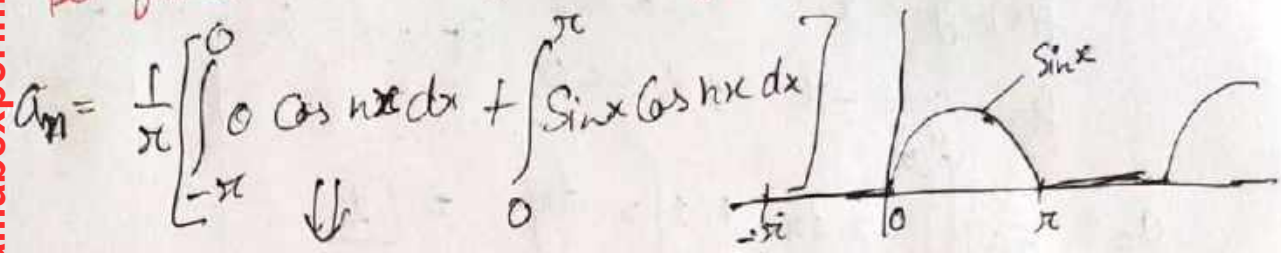 aₙ = 1/π [ ∫_{-π}^{0} 0 Cos nx dx + ∫_{0}^{π} Sinx Cos nx dx ]
⇓
Sinx
-π 0 π